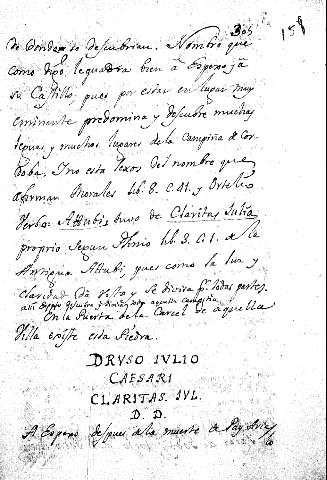 305
158
de donde lo descubrian. Nombre que
como dixo, le quadra bien a Espejo, ja
su Castillo, pues por estar en lugar muy
eminente predomina y descubre muchas
leguas, y muchos lugares de la Campiña de Cor-
doba. I no esta lexos del nombre que
afirman Morales lib. 8. C. 41. y Ortelio
Verbo: Attubi, tuvo de Claritas Julia
proprio segun Plinio lib. 3. C. 1. de la
Antigua Attubi, pues como la luz y
claridad da vista y se divisa por todas partes.
assi Espejo descubre y domina toda aquella campiña
En la Puerta de la Carcel de aquella
Villa existe esta Piedra.
DRUSO IULIO
CAESARI
CLARITAS. IUL.
D. D.
A Espejo despues de la muerte de Pay Arias